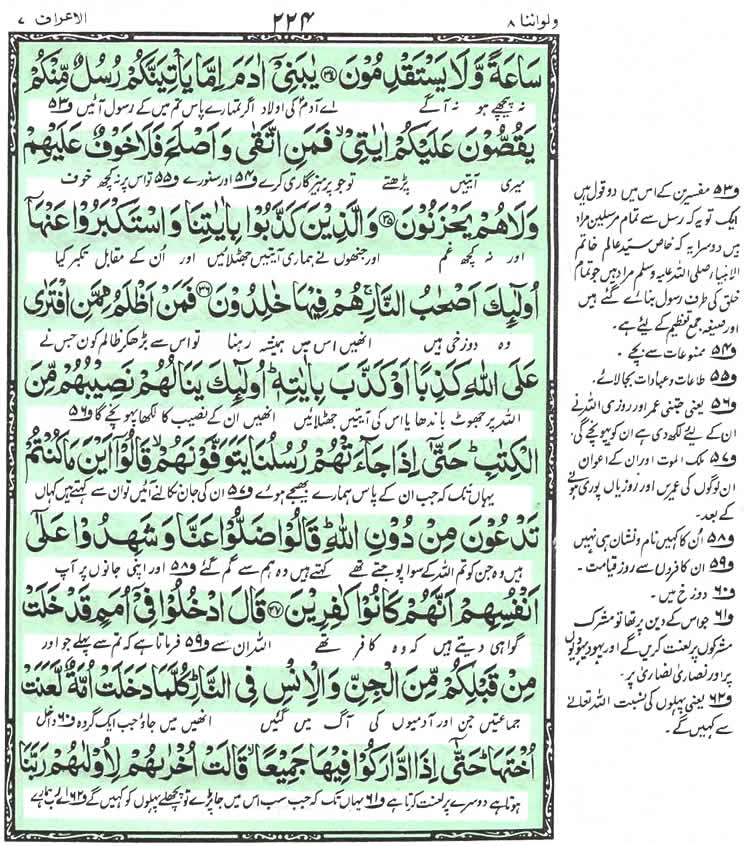 ولواننا ۸
۲۲۴
الاعراف ۷
سَاعَةً وَّلَا يَسْتَقْدِمُوْنَ ۳۴ يٰبَنِيْۤ اٰدَمَ اِمَّا يَاْتِيَنَّكُمْ رُسُلٌ مِّنْكُمْ
نہ پیچھے ہو نہ آگے اے آدم کی اولاد اگر تمہارے پاس تم میں کے رسول آئیں ف۵۳
يَقُصُّوْنَ عَلَيْكُمْ اٰيٰتِيْ ۙ فَمَنِ اتَّقٰى وَ اَصْلَحَ فَلَا خَوْفٌ عَلَيْهِمْ
میری آیتیں پڑھتے تو جو پرہیزگاری کرے ف۵۴ اور سنورے ف۵۵ تو اس پر نہ کچھ خوف
وَلَا هُمْ يَحْزَنُوْنَ ۳۵ وَالَّذِيْنَ كَذَّبُوْا بِاٰيٰتِنَا وَاسْتَكْبَرُوْا عَنْهَاۤ
اور نہ کچھ غم اور جنھوں نے ہماری آیتیں جھٹلائیں اور اُن کے مقابل تکبر کیا
اُولٰٓئِكَ اَصْحٰبُ النَّارِ ۚ هُمْ فِيْهَا خٰلِدُوْنَ ۳۶ فَمَنْ اَظْلَمُ مِمَّنِ افْتَرٰى
وہ دوزخی ہیں انھیں اس میں ہمیشہ رہنا تو اس سے بڑھ کر ظالم کون جس نے
عَلَى اللّٰهِ كَذِبًا اَوْ كَذَّبَ بِاٰيٰتِهٖ ؕ اُولٰٓئِكَ يَنَالُهُمْ نَصِيْبُهُمْ مِّنَ
اللہ پر جھوٹ باندھا یا اس کی آیتیں جھٹلائیں انھیں ان کے نصیب کا لکھا پہونچے گا ف۵۶
الْكِتٰبِ ؕ حَتّٰۤى اِذَا جَآءَتْهُمْ رُسُلُنَا يَتَوَفَّوْنَهُمْ ۙ قَالُوْۤا اَيْنَ مَا كُنْتُمْ
یہاں تک کہ جب ان کے پاس ہمارے بھیجے ہوئے ف۵۷ ان کی جان نکالنے آئیں تو ان سے کہتے ہیں کہاں
تَدْعُوْنَ مِنْ دُوْنِ اللّٰهِ ؕ قَالُوْا ضَلُّوْا عَنَّا وَ شَهِدُوْا عَلٰۤى
ہیں وہ جن کو تم اللہ کے سوا پوجتے تھے کہتے ہیں وہ ہم سے گم گئے ف۵۸ اور اپنی جانوں پر آپ
اَنْفُسِهِمْ اَنَّهُمْ كَانُوْا كٰفِرِيْنَ ۳۷ قَالَ ادْخُلُوْا فِيْۤ اُمَمٍ قَدْ خَلَتْ
گواہی دیتے ہیں کہ وہ کافر تھے اللہ ان سے ف۵۹ فرماتا ہے کہ تم سے پہلے جو اور
مِنْ قَبْلِكُمْ مِّنَ الْجِنِّ وَالْاِنْسِ فِي النَّارِ ؕ كُلَّمَا دَخَلَتْ اُمَّةٌ لَّعَنَتْ
جماعتیں جن اور آدمیوں کی آگ میں گئیں انھیں میں جاؤ جب ایک گروہ ف۶۰ داخل
اُخْتَهَا ؕ حَتّٰۤى اِذَا ادَّارَكُوْا فِيْهَا جَمِيْعًا ۙ قَالَتْ اُخْرٰىهُمْ لِاُوْلٰىهُمْ رَبَّنَا
ہوتا ہے دوسرے پر لعنت کرتا ہے ف۶۱ یہاں تک کہ جب سب اس میں جا پڑے تو پچھلے پہلوں کو کہیں گے ف۶۲ اے رب ہمارے
ف۵۳ مفسرین کے اس میں دو قول ہیں
ایک تو یہ کہ رسل سے تمام مرسلین مراد
ہیں دوسرا یہ کہ خاص سید عالم خاتم
الانبیاء صلی اللہ علیہ وسلم مراد ہیں جو تمام
خلق کی طرف رسول بنائے گئے ہیں
اور صیغہ جمع تعظیم کے لیے ہے۔
ف۵۴ ممنوعات سے بچے۔
ف۵۵ طاعات و عبادات بجا لائے۔
ف۵۶ یعنی جتنی عمر اور روزی اللہ نے
ان کے لیے لکھ دی ہے ان کو پہونچے گی۔
ف۵۷ ملک الموت اور ان کے اعوان
ان لوگوں کی عمریں اور روزیاں پوری ہونے
کے بعد۔
ف۵۸ اُن کا کہیں نام و نشان ہی نہیں
ف۵۹ ان کافروں سے روز قیامت۔
ف۶۰ دوزخ میں۔
ف۶۱ جو اس کے دین پر تھا تو مشرک
مشرکوں پر لعنت کریں گے اور یہود یہودیوں
پر اور نصاریٰ نصاریٰ پر۔
ف۶۲ یعنی پہلوں کی نسبت اللہ تعالےٰ
سے کہیں گے۔